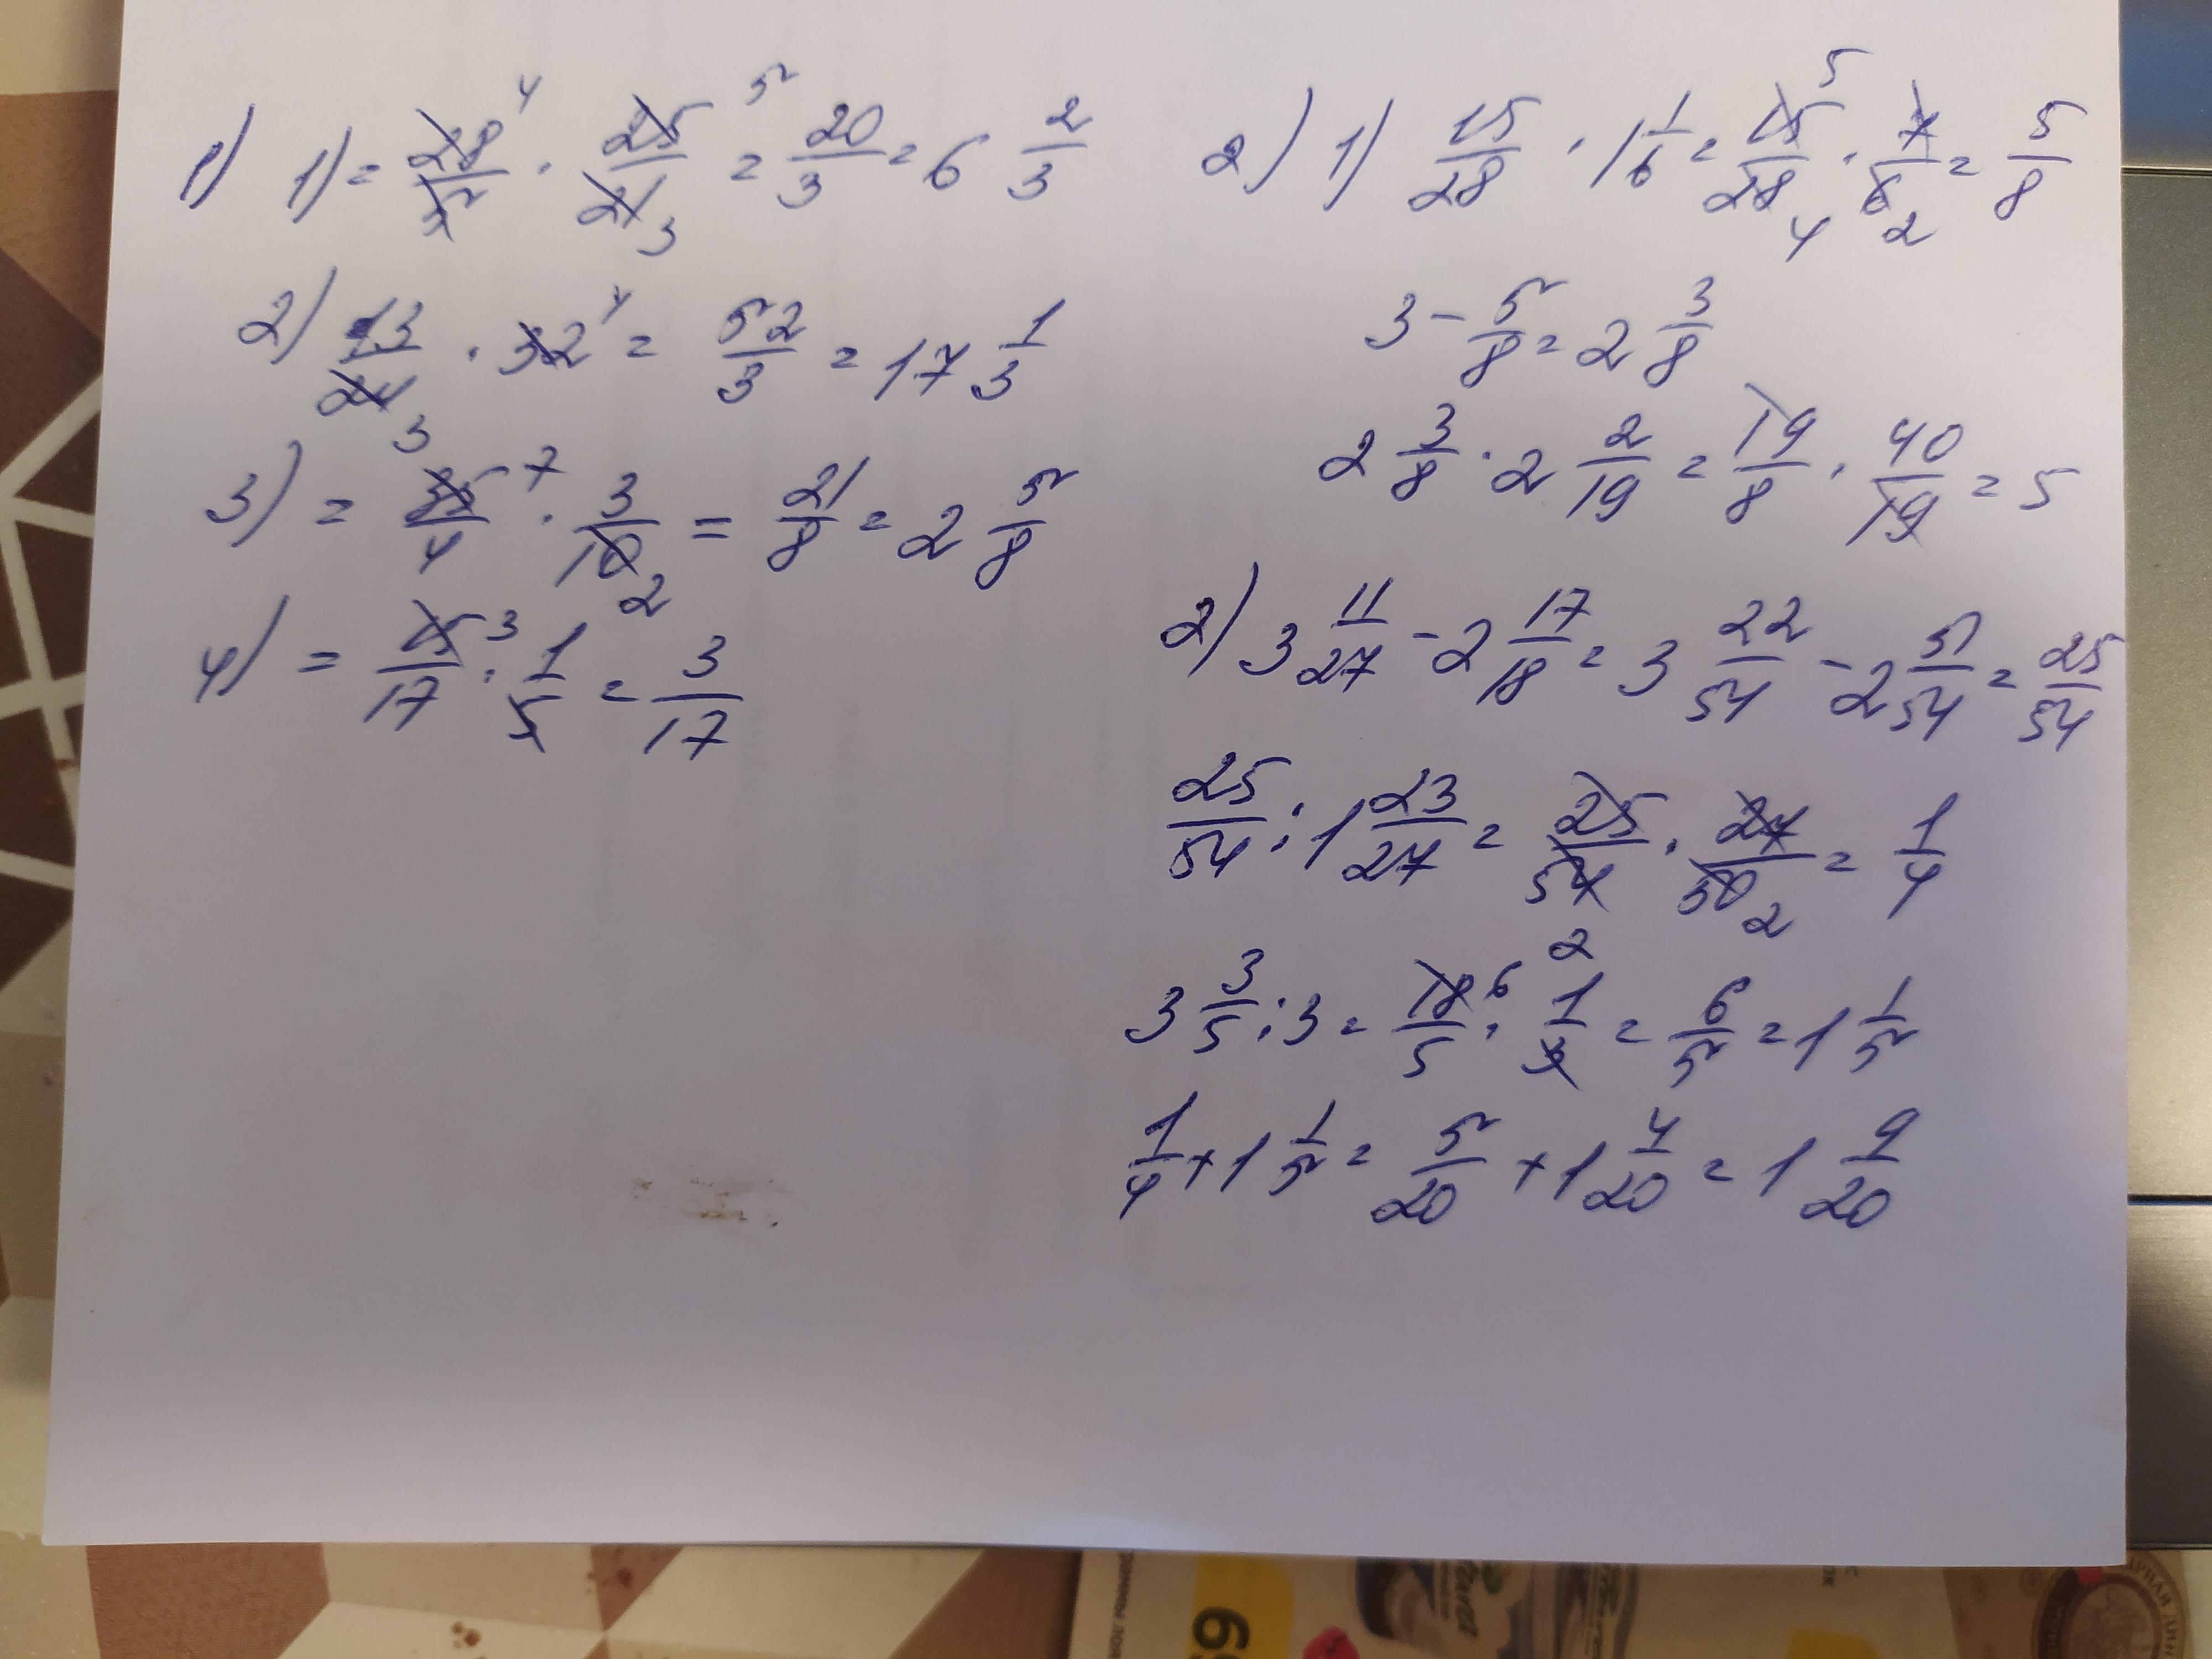 1) 1) = 28/5 · 25/21 = 20/3 = 6 2/3
2) 13/24 · 32 = 52/3 = 17 1/3
3) = 35/4 · 3/10 = 21/8 = 2 5/8
4) = 15/17 · 1/5 = 3/17
2) 1) 15/28 · 1 1/6 = 15/28 · 7/6 = 5/8
3 - 5/8 = 2 3/8
2 3/8 · 2 2/19 = 19/8 · 40/19 = 5
2) 3 11/27 - 2 17/18 = 3 22/54 - 2 51/54 = 25/54
25/54 : 1 23/27 = 25/54 · 27/50 = 1/4
3 3/5 : 3 = 18/5 · 1/3 = 6/5 = 1 1/5
1/4 + 1 1/5 = 5/20 + 1 4/20 = 1 9/20